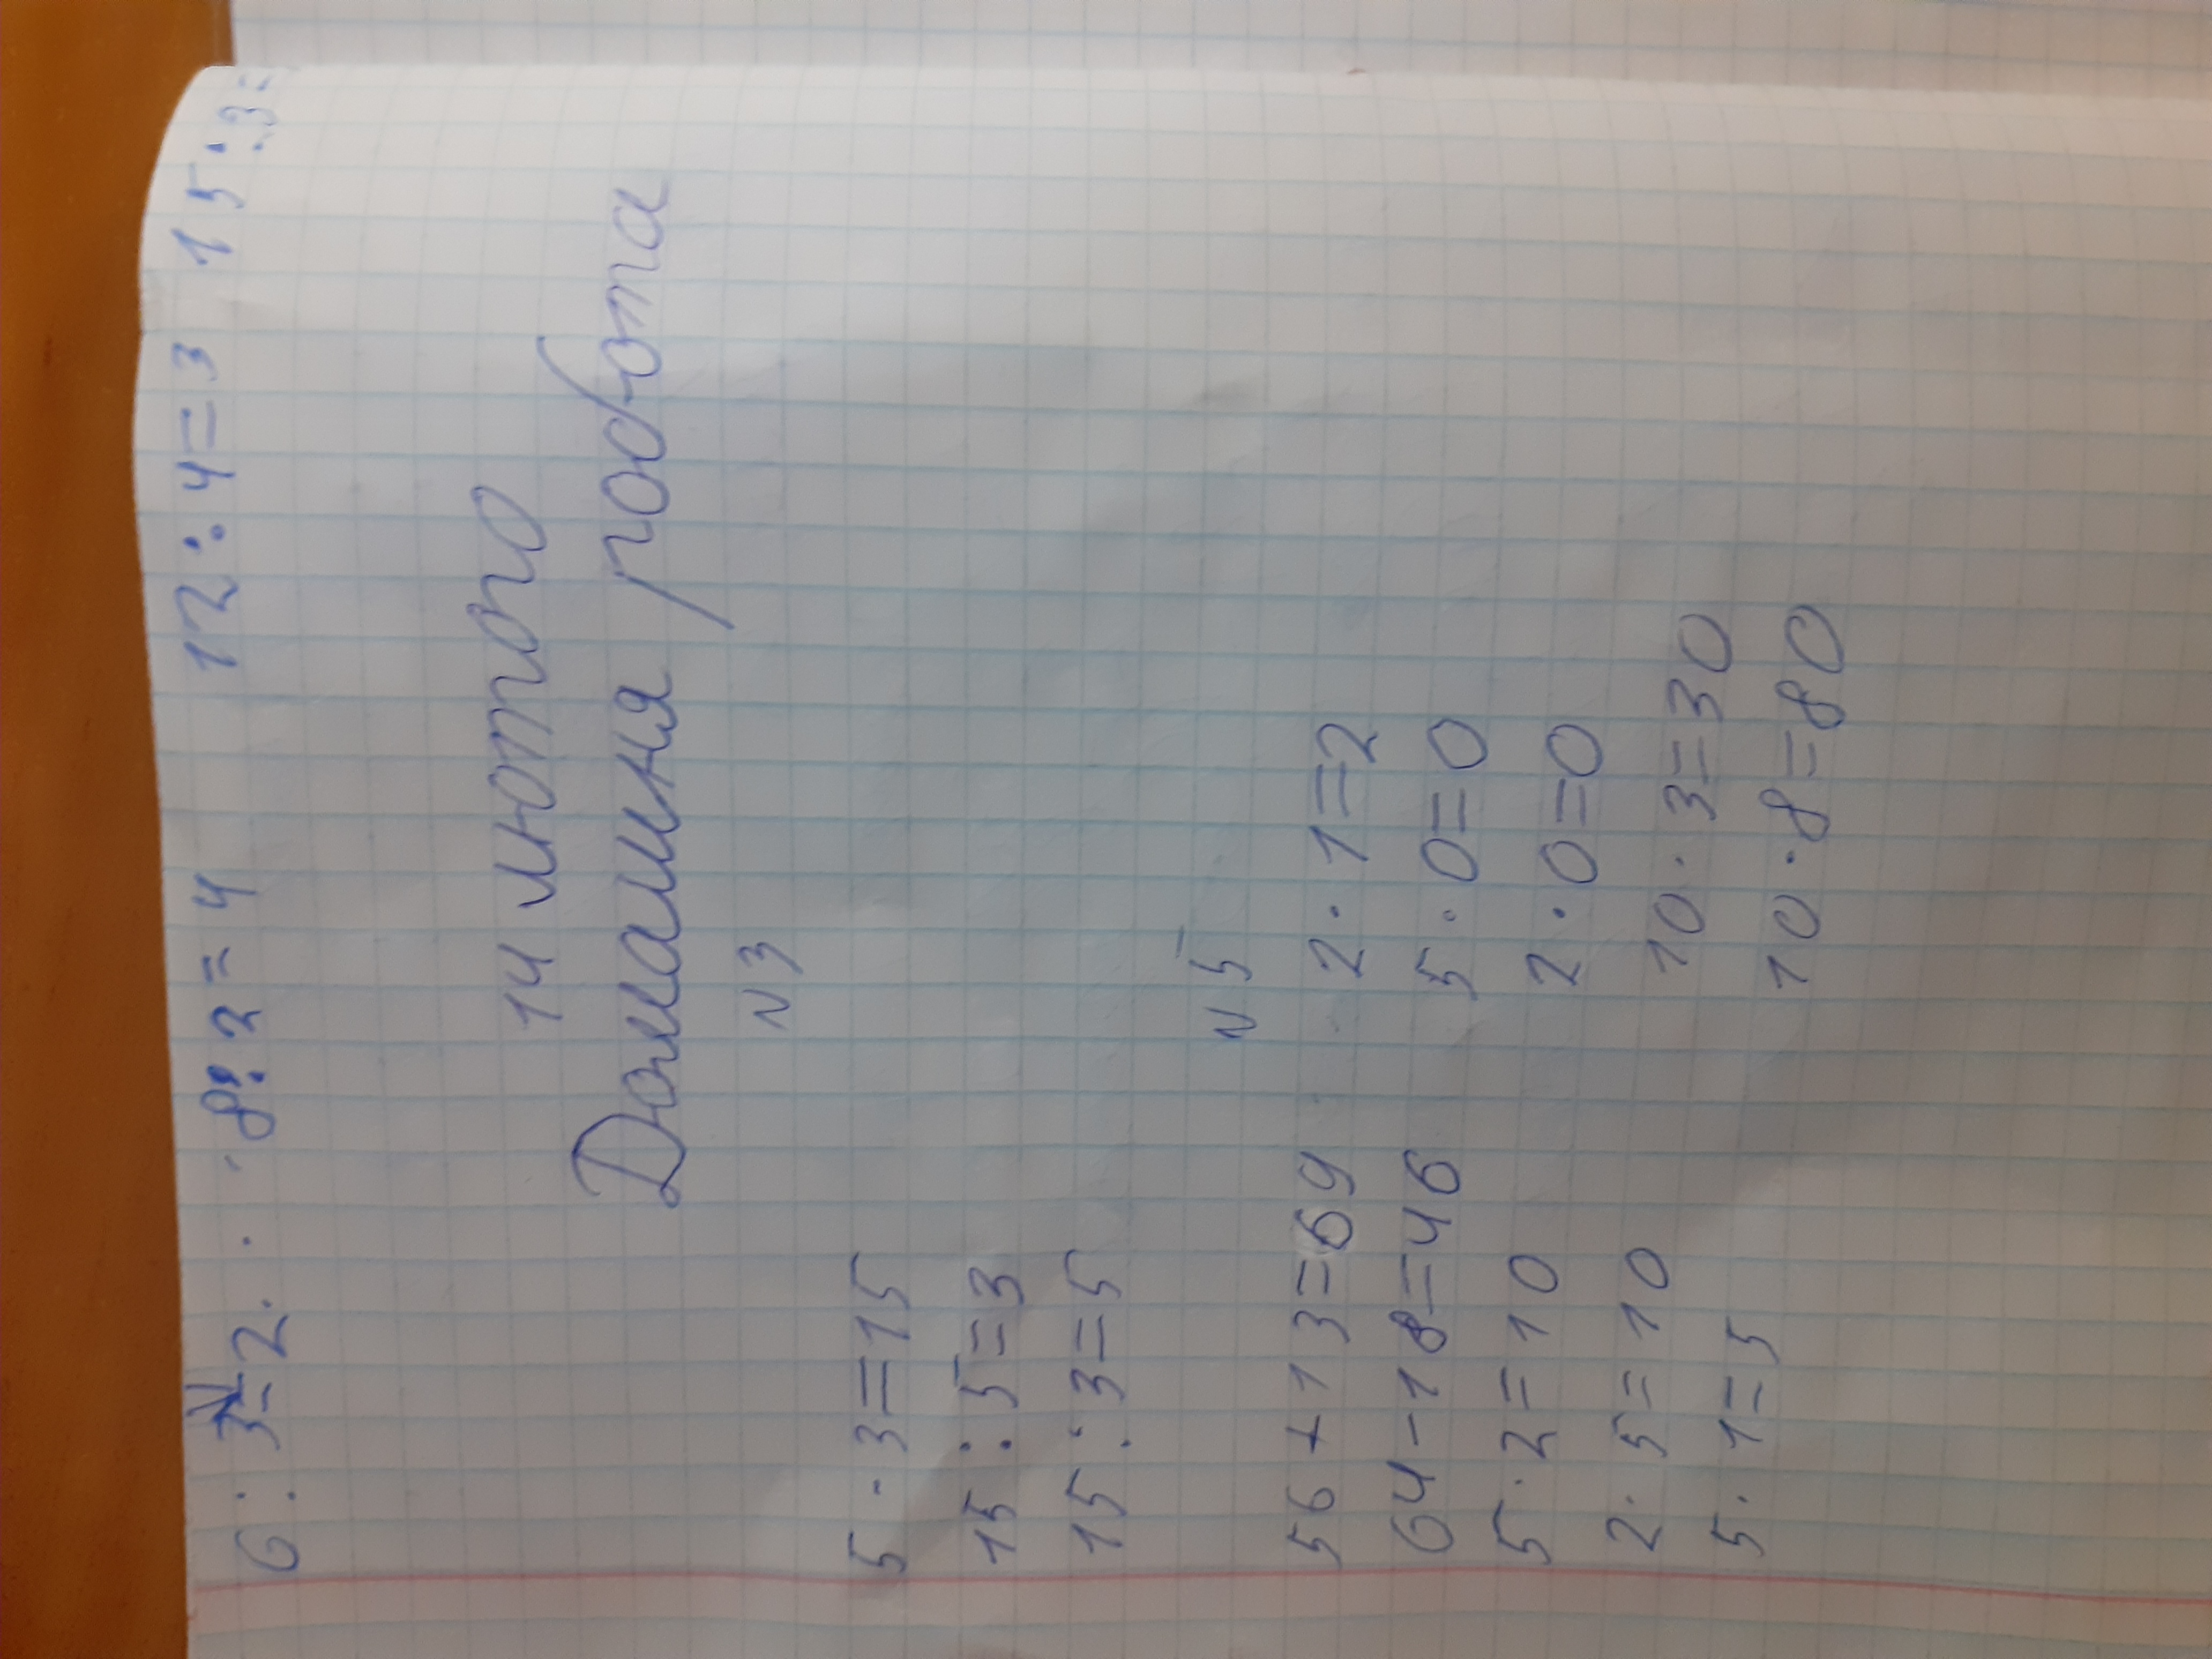 6 : 3=2 8:2=4 12:4=3 15:3=
14 лютого
Домашня робота
N3
5·3=15
15:5=3
15:3=5
N5
56+13=69 2·1=2
64-18=46 5·0=0
5·2=10 2·0=0
2·5=10 10·3=30
5·1=5 10·8=80